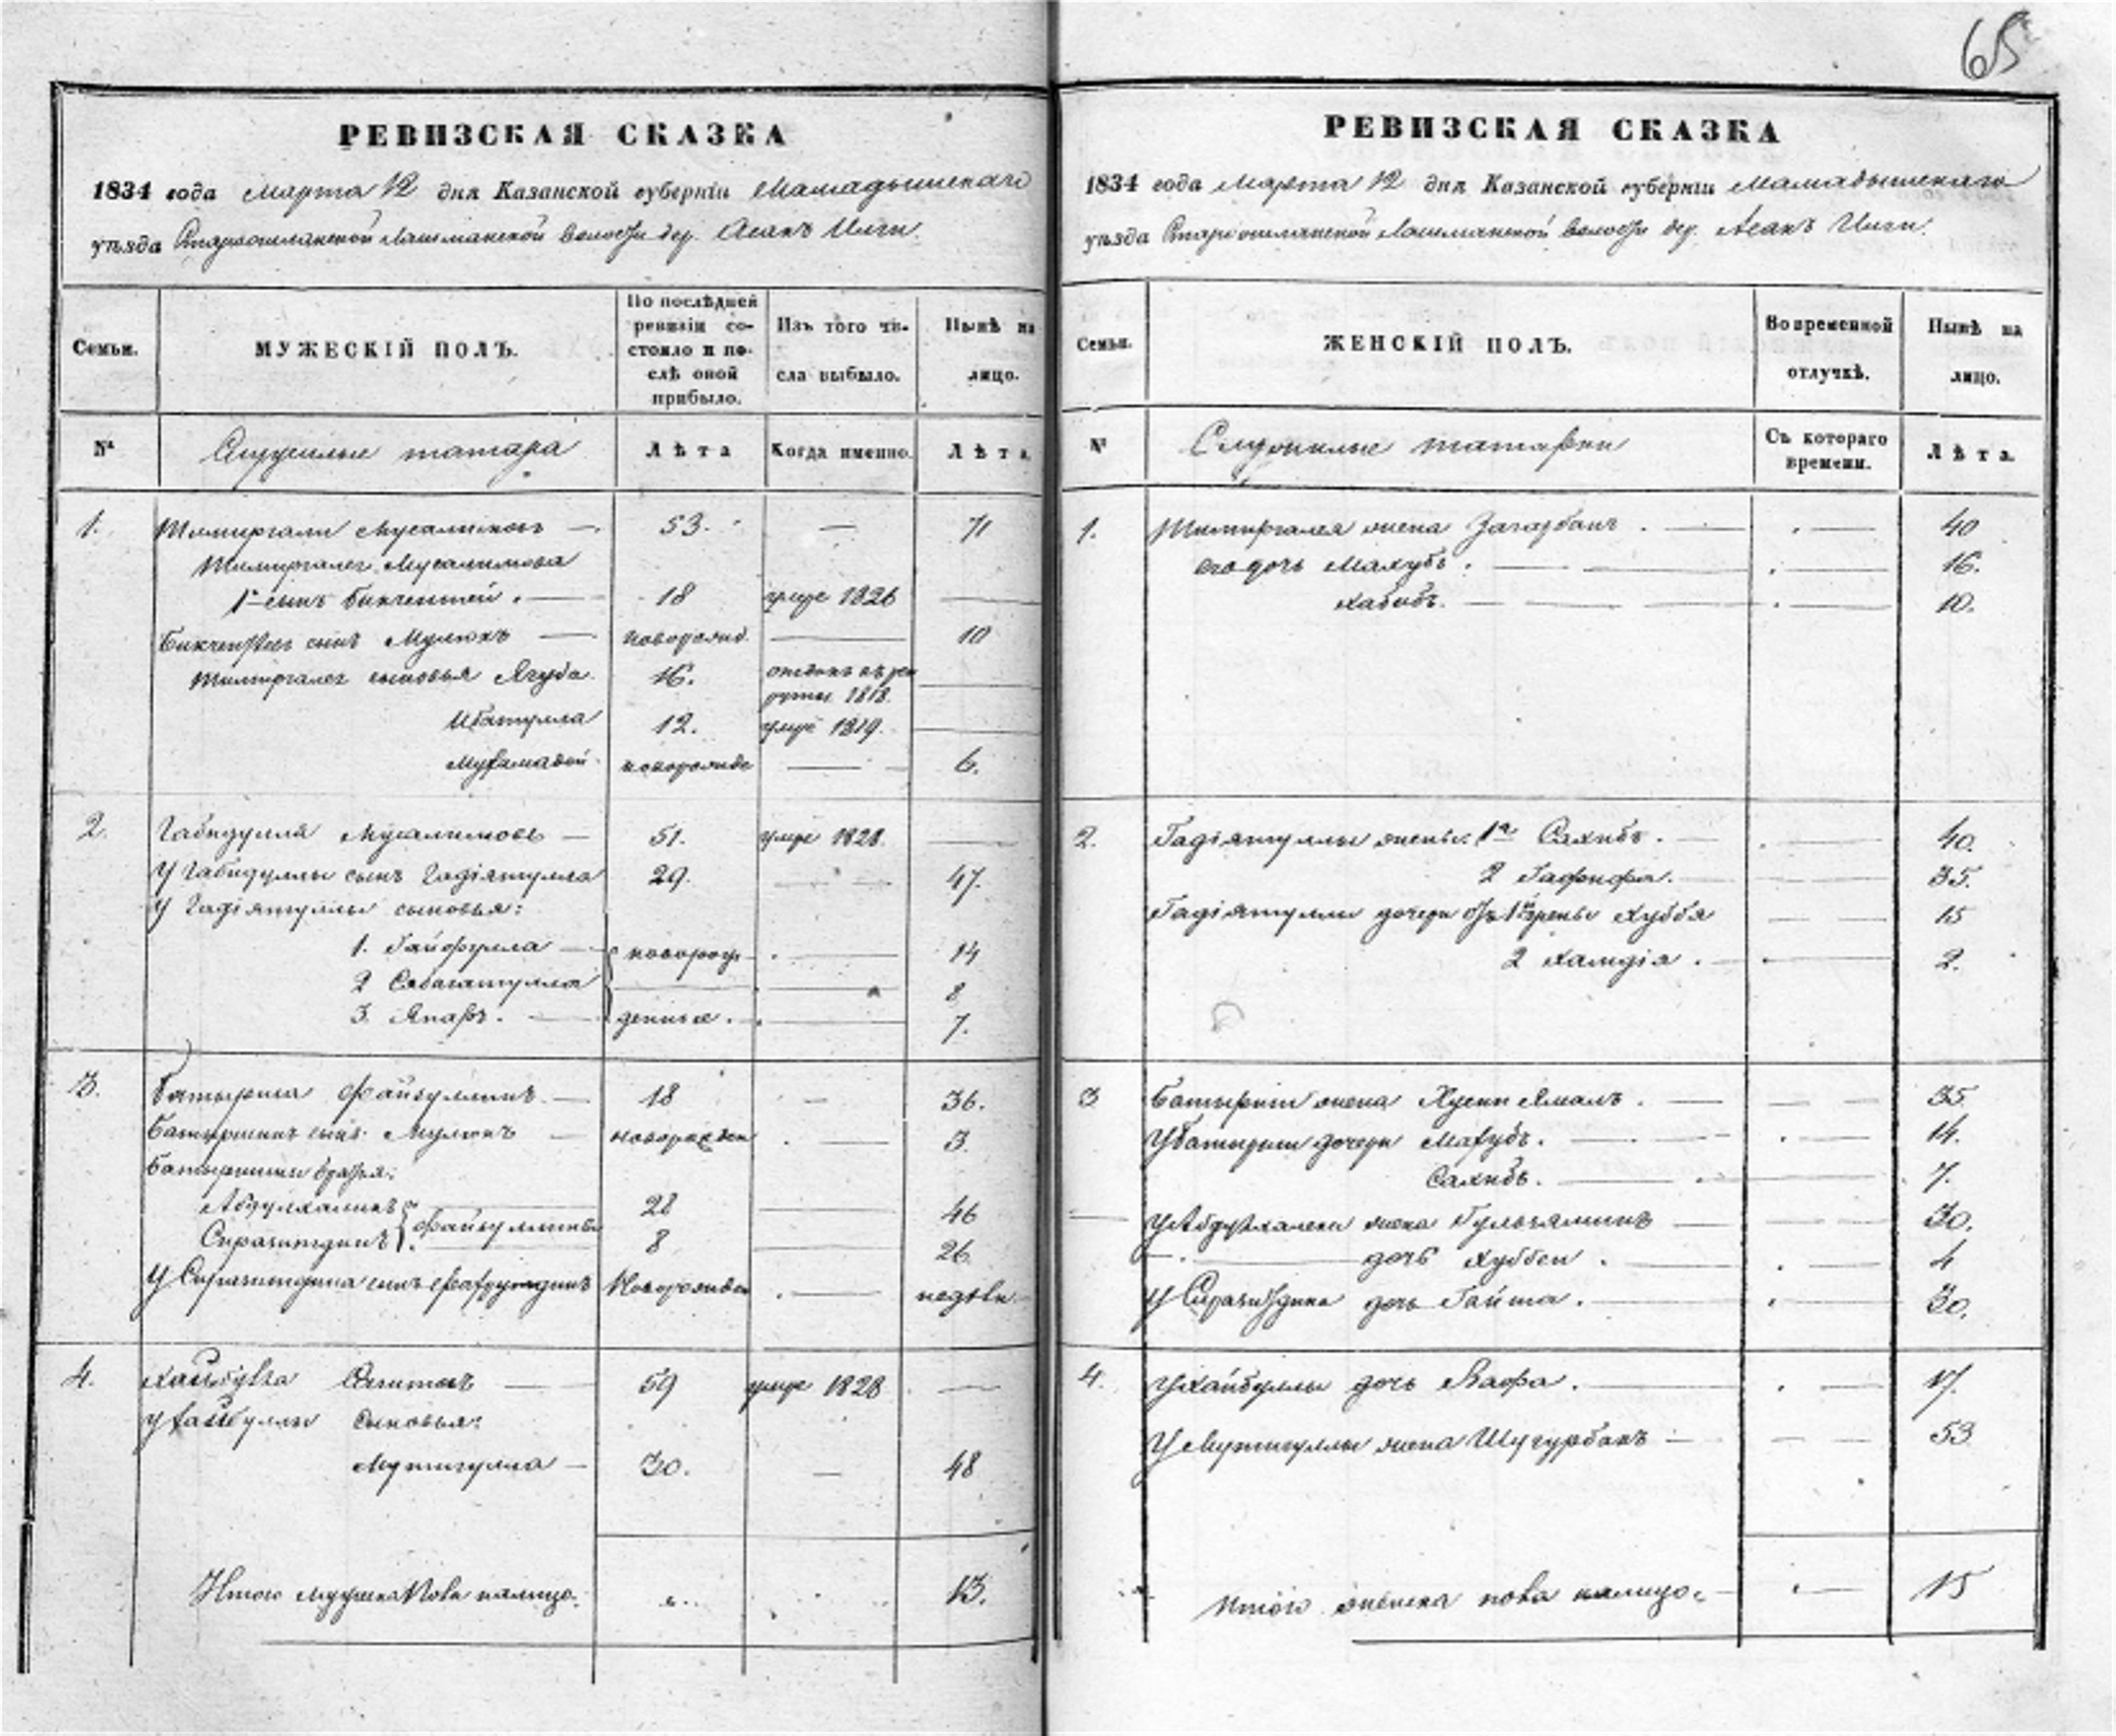 65
РЕВИЗСКАЯ СКАЗКА
1834 года Марта 12 дня Казанской губерніи Мамадышскаго
уѣзда Лашманской волости дер.
Семьи.
МУЖЕСКІЙ ПОЛЪ.
По послѣдней
ревизіи со-
стояло и по-
слѣ оной
прибыло.
Изъ того чи-
сла выбыло.
Нынѣ на
лицо.
№
Служилые татара
Лѣта
Когда именно.
Лѣта
1. Тимиргали Мусалимовъ — 53. — 71
Тимиргалея Мусалимова
1й сынъ Бикчентей. — 18 умре 1826 —
сынъ Мулюкъ — новорожд. — 10
Тимиргалея сыновья Ягуда 16. отданъ въ рек
руты 1818. —
Ибатулла 12. умре 1819. —
новорожде — 6.
2. Габидулла Мусалимовъ — 51. умре 1828. —
У Габидуллы сынъ Гадіятулла 29. — 47.
У Гадіятуллы сыновья:
1. Гайфулла — новорож — 14
2 Сабагатулла — 8
3. Япаръ. — денные. — 7.
3. Батырша Файзуллинъ — 18 — 36.
Батыршинъ сынъ Мулюкъ — новорожден — 3.
Батыршины братья:
28 — 46
Сиразитдинъ Файзуллины 8 — 26
У Сиразитдина сынъ Новорожден — недѣли
4. — 59 умре 1828 —
сыновья:
Мутигулла — 30. — 48
Итого мужеска пола налицо. 13.
РЕВИЗСКАЯ СКАЗКА
1834 года Марта 12 дня Казанской губерніи Мамадышскаго
уѣзда Лашманской волости дер.
Семьи.
ЖЕНСКІЙ ПОЛЪ.
Во временной
отлучкѣ.
Нынѣ на
лицо.
№
Служилые татарки
Съ котораго
времени.
Лѣта.
1. Тимиргалея жена — 40
его дочь Махубъ. — 16.
Хабибъ. — 10.
2. Гадіятуллы жены: 1я Сахибъ. — 40.
2 Гафифа. — 35.
Гадіятуллы дочери отъ 1й жены Хуббя — 15
2 Хамдія. — 2.
3 Батырши жена Хусни Ямалъ. — 35
У Батырши дочери Махубъ. — 14.
Сахибъ. — 7.
жена — 30.
— дочь Хуббеи. — 4
У Сиразитдина дочь Гайша. — 30.
4. У Хайбуллы дочь — 17.
У Мутигуллы жена Шугурбанъ — 53
Итого женска пола налицо. — 15